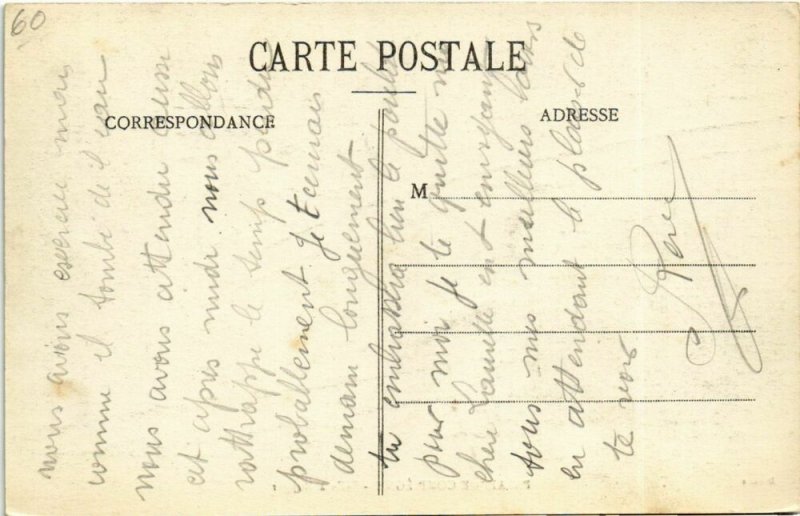 60
CARTE POSTALE
CORRESPONDANCE
ADRESSE
M
nous avions mais
comme il tombé de l'eau
nous avons attendu
cet apres midi nous allons
rattrappe le temp perdu
probablement Je t'ecrirais
demain longuement
tu embrassera bien le poulet
pour moi je te quitte ma
chere en t envoyant
tous mes meilleurs
en attendant le plaisir de
te voir